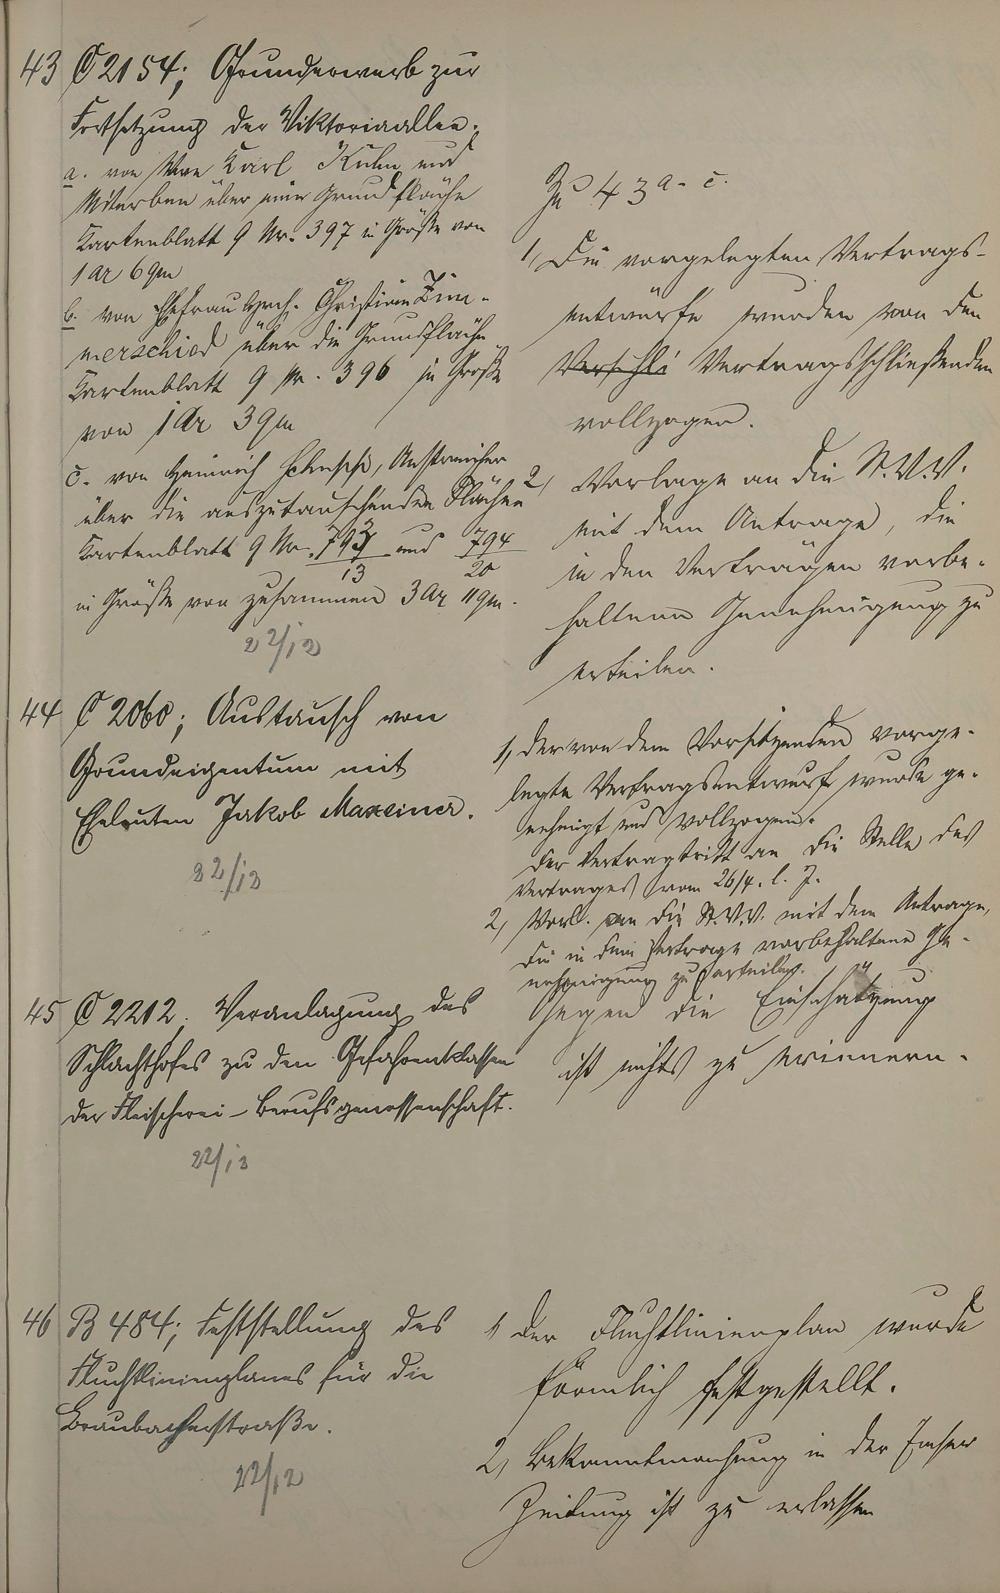 43 C 2154; Grunderwerb zur
Fortsetzung der Viktoriaallee.
a. von Wwe Karl Kuhn und
Miterben über eine Grundfläche
Kartenblatt 9 Nr. 397 in Größe von
1 ar 6 qm
b. von Ehefrau Christian Zim-
merschied über die Grundfläche
Kartenblatt 9 Nr. 396 in Größe
von 1 Ar 3 qm
c. von Heinrich Anstreicher
über die auszutauschenden Flächen
Kartenblatt 9 Nr. 793/13 und 794/20
in Größe von zusammen 3 Ar 11 qm.
22/12
Zu 43 a - c.
1, Die vorgelegten Vertrags-
entwürfe wurden von den
Vertragsschließenden
vollzogen.
2, Vorlage an die St.V.V.
mit dem Antrage, die
in den Verträgen vorbe-
haltene Genehmigung zu
erteilen.
44 C 2060; Austausch von
Grundeigentum mit
Eheleuten Jakob Maxeiner.
22/12
1, Der von dem Vorsitzenden vorge-
legte Vertragsentwurf wurde ge-
nehmigt und vollzogen.
Der Vertrag tritt an die Stelle des
Vertrages vom 26/4. l. J.
2, Vorl. an die St.V.V. mit dem Antrage,
die in dem Vertrage vorbehaltene Ge-
nehmigung zu erteilen.
45 C 2212. Veranlagung des
Schlachthofes zu den Gefahrenklassen
der Fleischerei-Berufsgenossenschaft.
22/12
Gegen die Einschätzung
ist nichts zu erinnern.
46 B 484; Feststellung des
Fluchtlinienplanes für die
Braubacherstraße.
22/12
1, Der Fluchtlinienplan wurde
förmlich festgestellt.
2, Bekanntmachung in der Emser
Zeitung ist zu erlassen